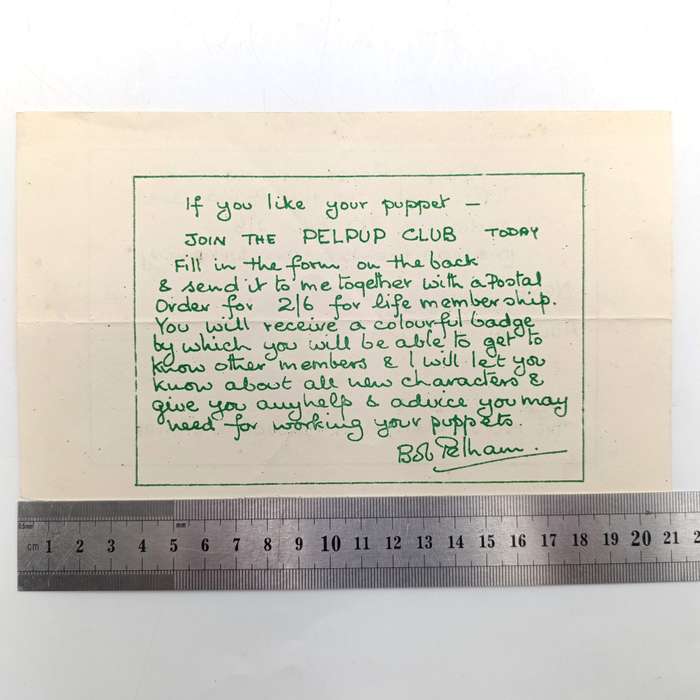 If you like your puppet —
JOIN THE PELPUP CLUB TODAY
Fill in the form on the back
& send it to me together with a Postal
Order for 2/6 for life membership.
You will receive a colourful badge
by which you will be able to get to
know other members & I will let you
know about all new characters &
give you any help & advice you may
need for working your puppets.
Bob Pelham.
0.5mm mm
cm 1 2 3 4 5 6 7 8 9 10 11 12 13 14 15 16 17 18 19 20 21